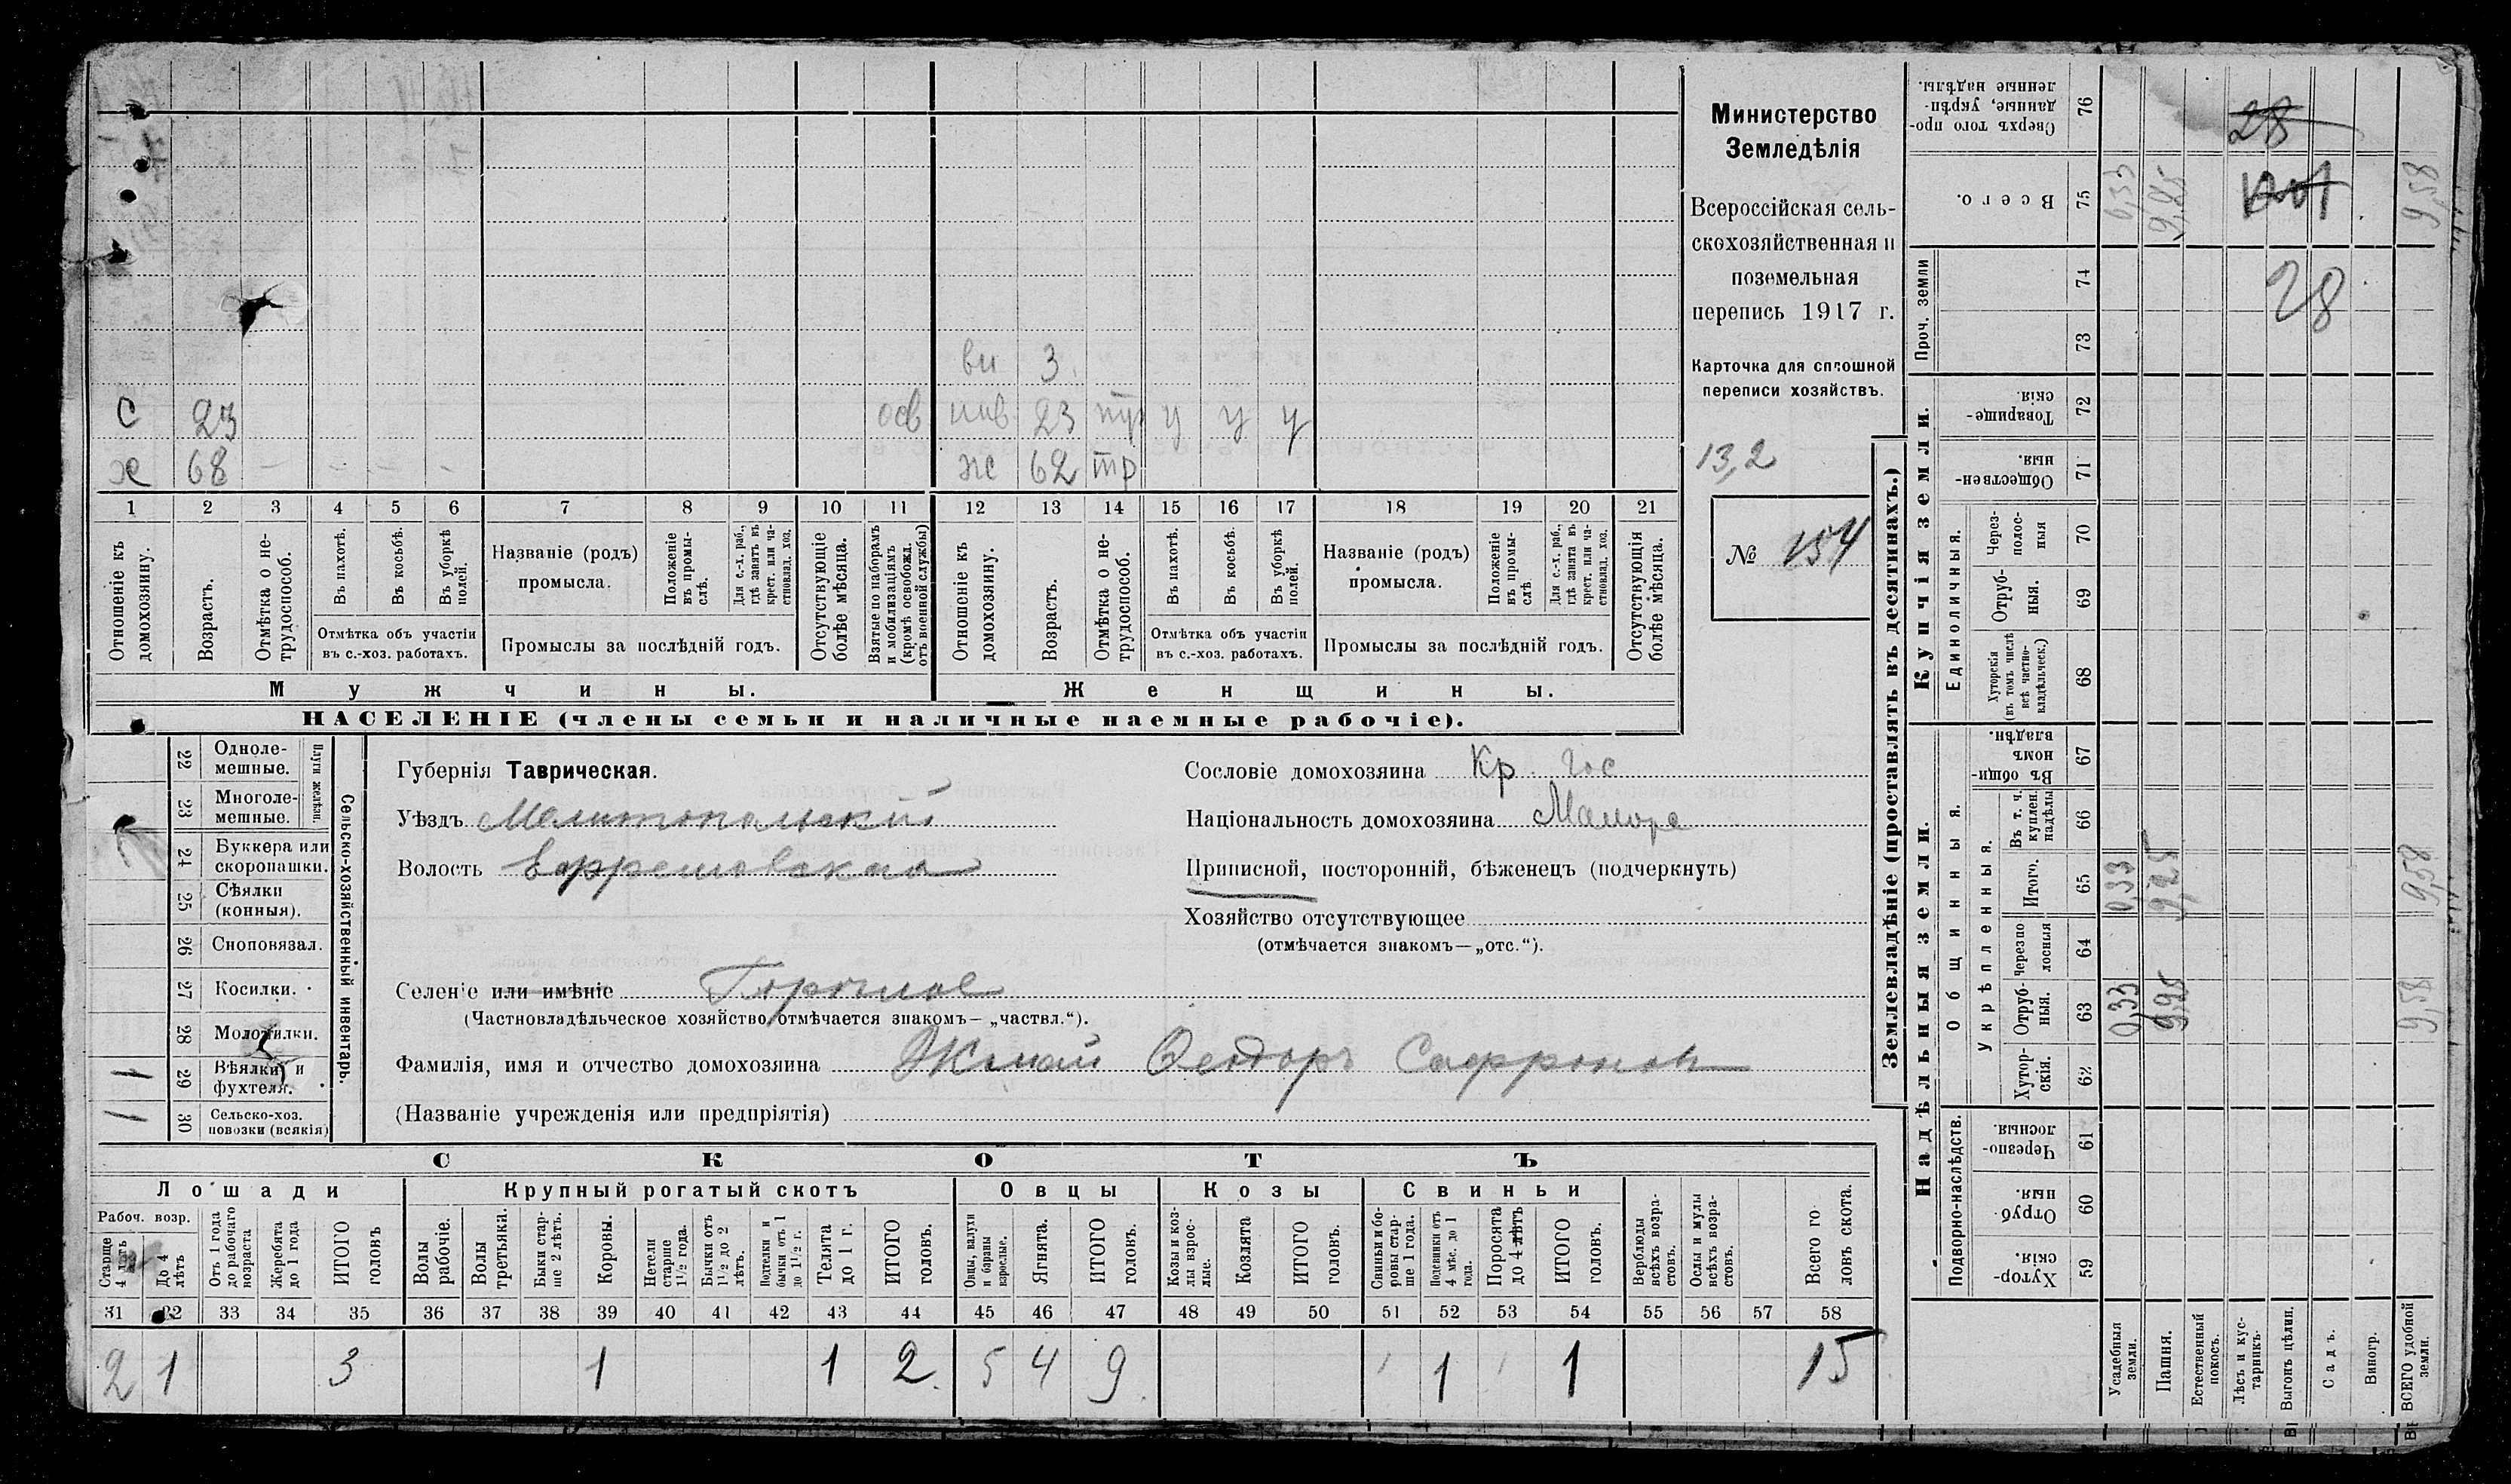 Министерство
Земледѣлія
Всероссійская сель-
скохозяйственная и
поземельная
перепись 1917 г.
Карточка для сплошной
переписи хозяйствъ.
13,2
№ 154
ви 3
с 23 осв нив 23 тр у у у
х 68 - - - - ж 62 тр
1 2 3 4 5 6 7 8 9 10 11 12 13 14 15 16 17 18 19 20 21
Отношеніе къ домохозяину.
Возрастъ.
Отмѣтка о не-трудоспособ.
Въ пахотѣ.
Въ косьбѣ.
Въ уборкѣ полей.
Отмѣтка объ участіи
въ с.-хоз. работахъ.
Названіе (родъ)
промысла.
Положеніе въ промы-слѣ.
Для с.-х. раб., гдѣ занятъ въ крест. или ча-стновлад. хоз.
Промыслы за послѣдній годъ.
Отсутствующіе болѣе мѣсяца.
Взятые по наборамъ и мобилизаціямъ (кромѣ освобожд. отъ военной службы)
Отношеніе къ домохозяину.
Возрастъ.
Отмѣтка о не-трудоспособ.
Въ пахотѣ.
Въ косьбѣ.
Въ уборкѣ полей.
Отмѣтка объ участіи
въ с.-хоз. работахъ.
Названіе (родъ)
промысла.
Положеніе въ промы-слѣ
Для с.-х. раб., гдѣ занята въ крест. или ча-стновлад. хоз.
Промыслы за послѣдній годъ.
Отсутствующія болѣе мѣсяца.
Мужчины.
Женщины.
НАСЕЛЕНІЕ (члены семьи и наличные наемные рабочіе).
22 Одноле-мешные.
23 Многоле-мешные.
Плуги желѣзн.
24 Буккера или скоропашки.
25 Сѣялки (конныя).
26 Сноповязал.
27 Косилки.
28 Молотилки.
1 29 Вѣялки и фухтеля.
1 30 Сельско-хоз. повозки (всякія)
Сельско-хозяйственный инвентарь.
Губернія Таврическая.
Уѣздъ Мелитопольскій
Волость Ефремовская
Селеніе или имѣніе Горѣлое
(Частновладѣльческое хозяйство отмѣчается знакомъ— „частвл.“).
Фамилія, имя и отчество домохозяина Жмай Ѳедоръ Саффронов
(Названіе учрежденія или предпріятія)
Сословіе домохозяина Кр. Гос
Національность домохозяина Малорс
Приписной, посторонній, бѣженецъ (подчеркнуть)
Хозяйство отсутствующее
(отмѣчается знакомъ—„отс.“).
СКОТЪ
Лошади
Крупный рогатый скотъ
Овцы
Козы
Свиньи
Рабоч. возр.
Старше 4 лѣтъ
До 4 лѣтъ
Отъ 1 года до рабочаго возраста
Жеребята до 1 года
ИТОГО головъ
Волы рабочіе.
Волы третьяки.
Быки стар-ше 2 лѣтъ.
Коровы.
Нетели старше 1½ года.
Бычки отъ 1½ до 2 лѣтъ.
Подтелки и бычки отъ 1 до 1½ г.
Телята до 1 г.
ИТОГО головъ.
Овцы, валухи и бараны взрослые.
Ягнята.
ИТОГО головъ.
Козы и коз-лы взрос-лые.
Козлята
ИТОГО головъ.
Свиньи и бо-ровы стар-ше 1 года.
Подсвинки отъ 4 мѣс. до 1 года.
Поросята до 4 лѣтъ
ИТОГО головъ.
Верблюды всѣхъ возра-стовъ.
Ослы и мулы всѣхъ возра-стовъ.
Всего го-ловъ скота.
31 32 33 34 35 36 37 38 39 40 41 42 43 44 45 46 47 48 49 50 51 52 53 54 55 56 57 58
2 1 3 1 1 2 5 4 9 1 1 15
Землевладѣніе (проставлять въ десятинахъ.)
Купчія земли.
Надѣльныя земли.
76 Сверхъ того про-данные, укрѣп-ленные надѣлы.
28
75 Всего.
0,33 9,25 9,58
Проч. земли
74
28
73
72 Товарище-скія.
71 Обществен-ныя.
Единоличныя.
70 Через-полос-ныя
69 Отруб-ныя.
68 Хуторскія (въ томъ числѣ всѣ частно-владѣльческ.)
Общинныя.
67 Въ общи-номъ владѣн.
Укрѣпленныя.
66 Въ т. ч. куплен. надѣлы
65 Итого.
0,33 9,25 9,58
64 Черезпо лосныя
63 Отруб-ныя.
0,33 9,25 9,58
62 Хутор-скія.
Подворно-наслѣдств.
61 Черезпо-лосныя.
60 Отруб-ныя.
59 Хутор-скія.
Усадебныя земли.
Пашня.
Естественный покосъ.
Лѣсъ и кус-тарникъ.
Выгонъ цѣлин.
Садъ.
Виногр.
ВСЕГО удобной земли.